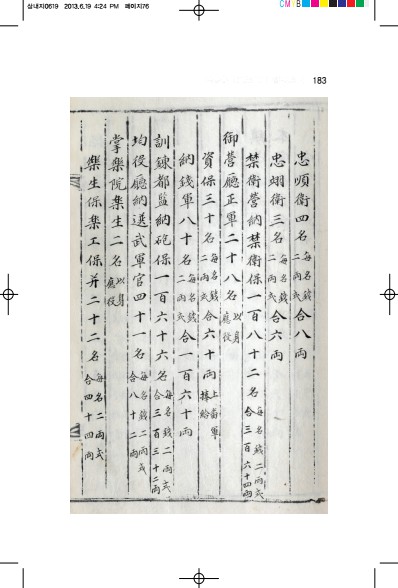 삼내지0619 2013.6.19 4:24 PM 페이지76
CM
183
忠順衛四名每名錢二兩式合八兩
忠翊衛三名每名錢二兩式合六兩
禁衛營納禁衛保一百八十二名每名錢二兩式合三百六十四兩
御營廳正軍二十八名以身應役
資保三十名每名錢二兩式合六十兩上番軍捧給
納錢軍八十名每名錢二兩式合一百六十兩
訓鍊都監納砲保一百六十六名每名錢二兩式合三百三十二兩
均役廳納選武軍官四十一名每名錢二兩式合八十二兩
掌樂院樂生二名以身應役
樂生保樂工保并二十二名每名二兩式合四十四兩